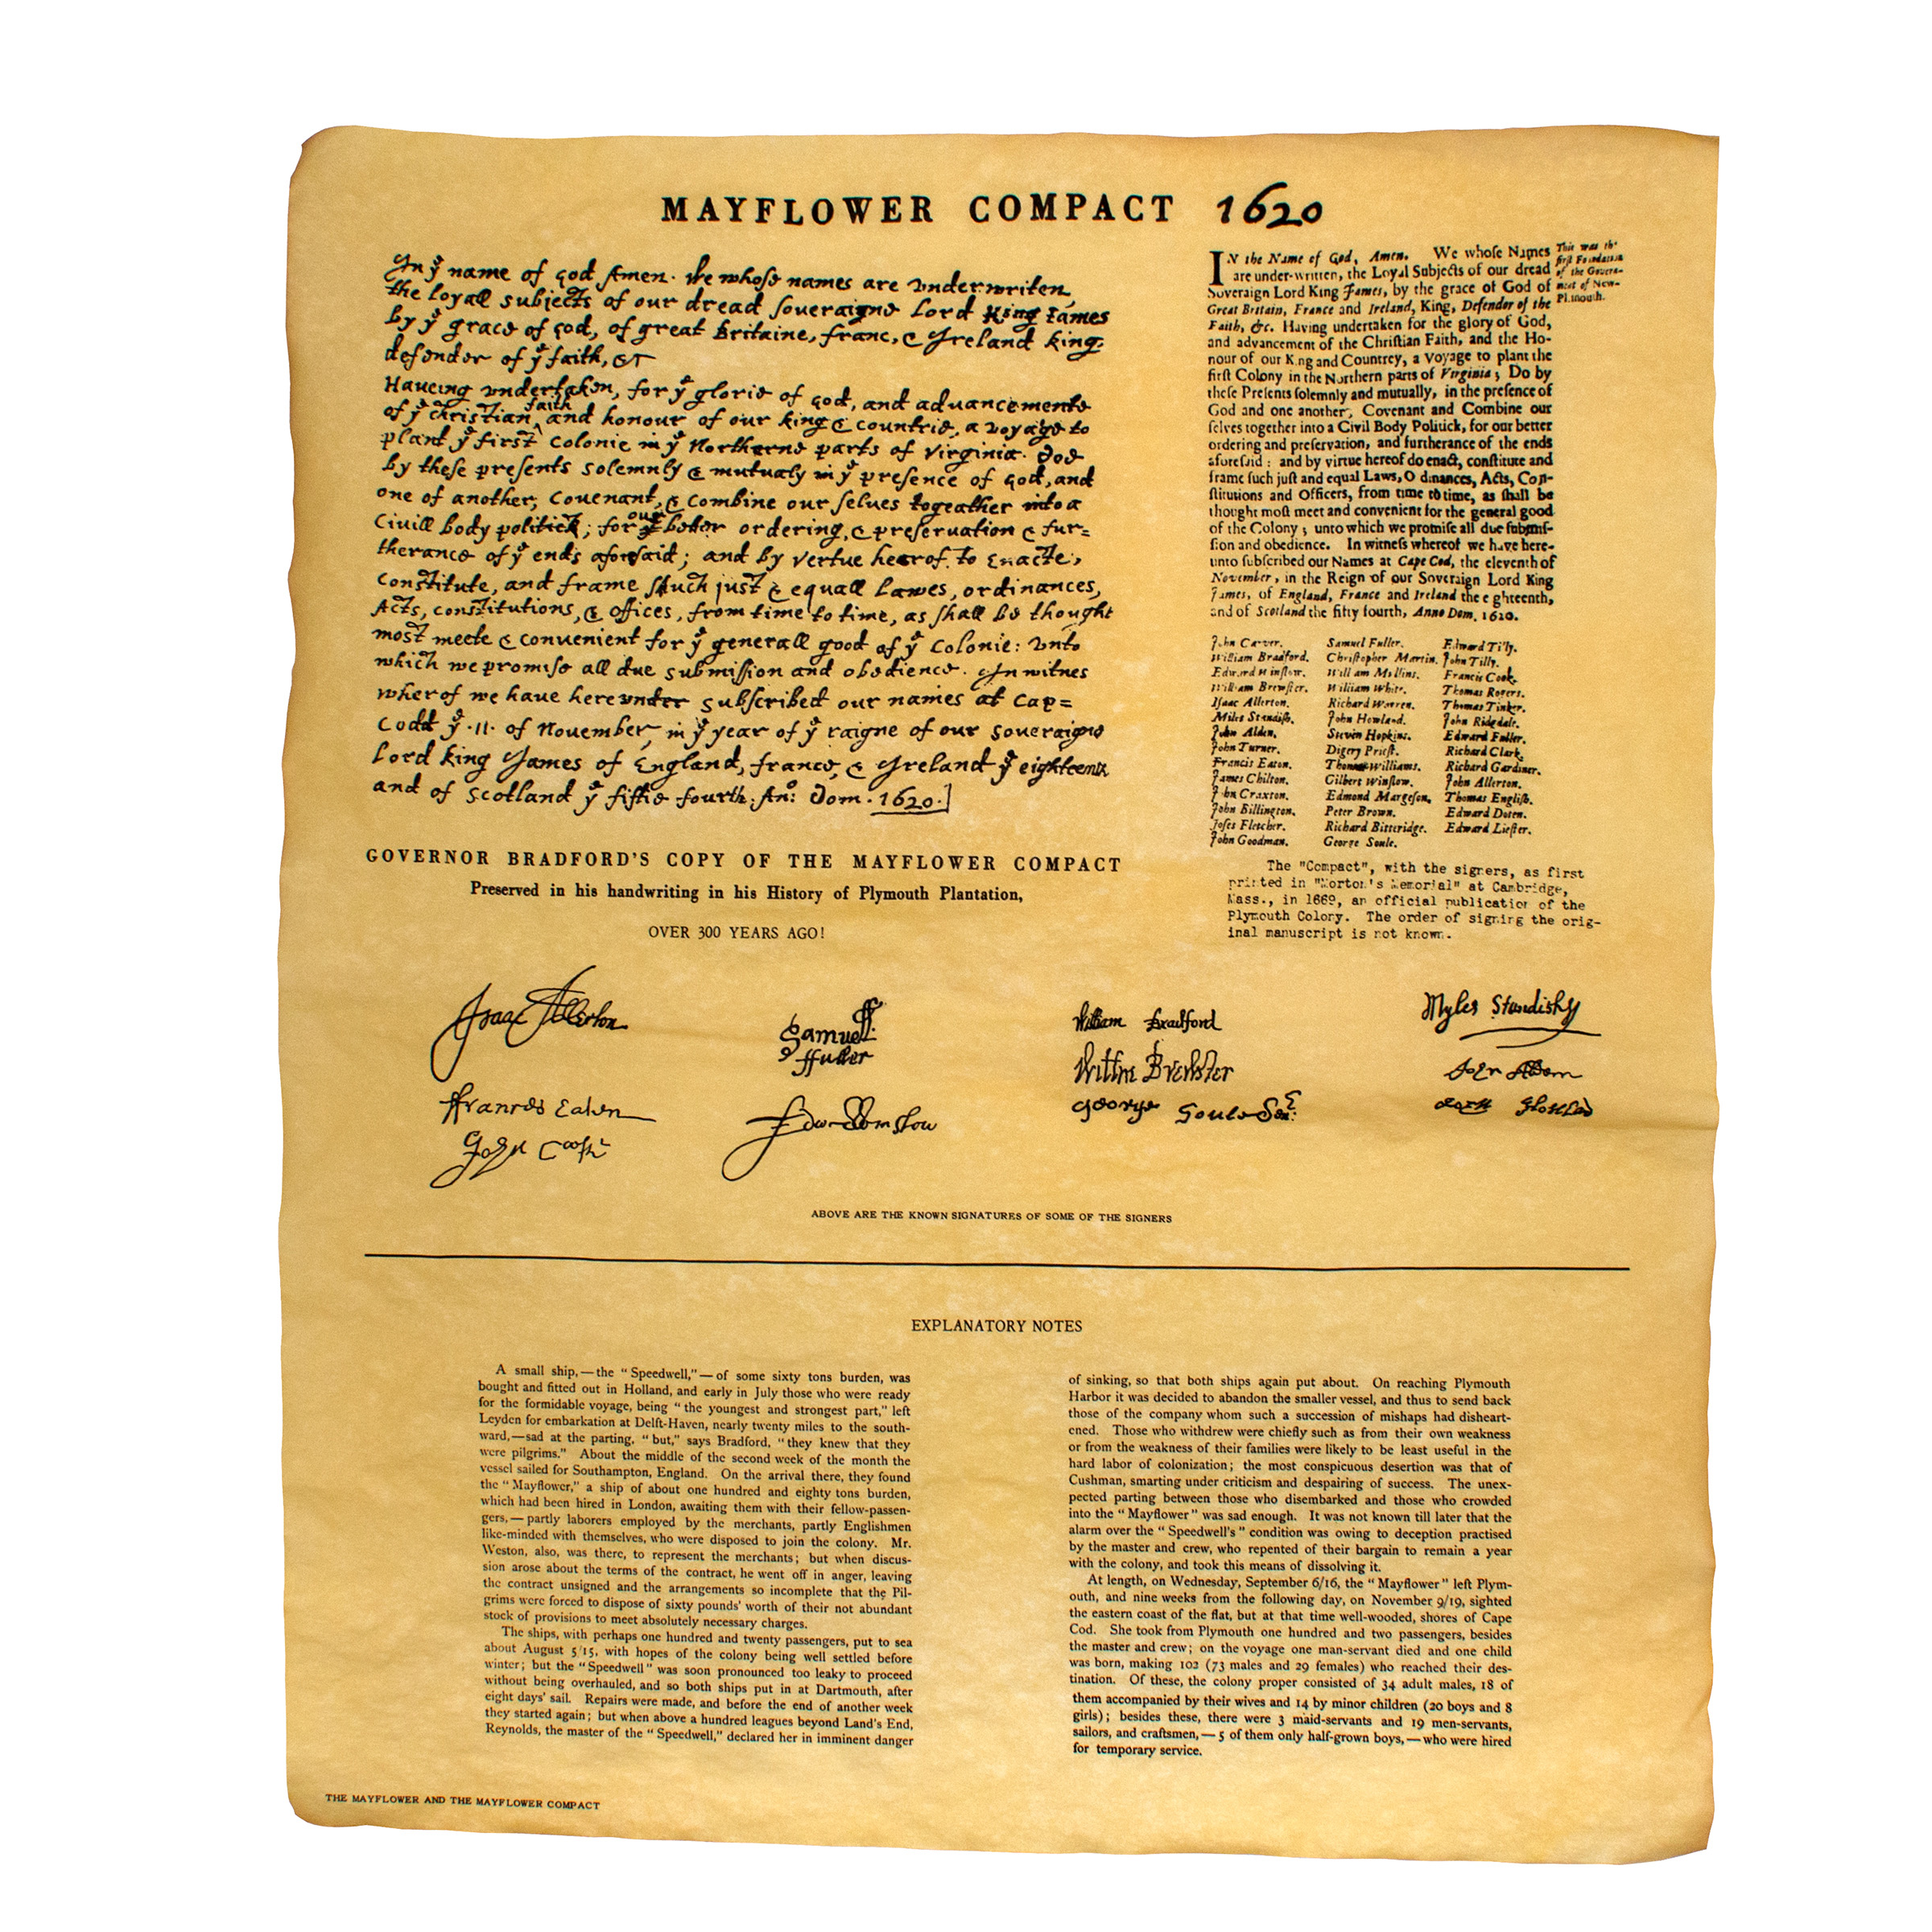 MAYFLOWER COMPACT 1620
In yͤ name of god Amen. We whose names are vnderwriten,
the loyall subjects of our dread soueraigne Lord King Iames
by yͤ grace of god, of great Britaine, franc, & Ireland king,
defender of yͤ faith, &c
Haueing vndertaken, for yͤ glorie of god, and aduancemente
of yͤ christian ^faith and honour of our king & countrie, a voyage to
plant yͤ first colonie in yͤ Northerne parts of Virginia. Doe
by these presents solemnly & mutualy in yͤ presence of god, and
one of another, covenant, & combine our selues togeather into a
Civill body politick; for our better ordering, & preservation & fur=
therance of yͤ ends aforesaid; and by vertue hearof to Enacte,
constitute, and frame shuch just & equall Lawes, ordinances,
Acts, constitutions, & offices, from time to time, as shall be thought
most meete & convenient for yͤ generall good of yͤ Colonie: vnto
which we promise all due submission and obedience. In witnes
wherof we have hereunder subscribed our names at Cap=
Codd yͤ .11. of November, in yͤ year of yͤ raigne of our soveraigne
Lord king James of England, france, & Ireland yͤ eighteenth
and of Scotland yͤ fiftie fourth. An̊: Dom. 1620.]
GOVERNOR BRADFORD'S COPY OF THE MAYFLOWER COMPACT
Preserved in his handwriting in his History of Plymouth Plantation,
OVER 300 YEARS AGO!
IN the Name of God, Amen. We whose Names
are under-written, the Loyal Subjects of our dread
Soveraign Lord King James, by the grace of God of
Great Britain, France and Ireland, King, Defender of the
Faith, &c. Having undertaken for the glory of God,
and advancement of the Christian Faith, and the Ho-
nour of our King and Countrey, a Voyage to plant the
first Colony in the Northern parts of Virginia; Do by
these Presents solemnly and mutually, in the presence of
God and one another, Covenant and Combine our
selves together into a Civil Body Politick, for our better
ordering and preservation, and furtherance of the ends
aforesaid: and by virtue hereof do enact, constitute and
frame such just and equal Laws, O dinances, Acts, Con-
stitutions and Officers, from time to time, as shall be
thought most meet and convenient for the general good
of the Colony; unto which we promise all due submis-
sion and obedience. In witness whereof we have here-
unto subscribed our Names at Cape Cod, the eleventh of
November, in the Reign of our Soveraign Lord King
James, of England, France and Ireland the e ghteenth,
and of Scotland the fifty fourth, Anno Dom. 1620.
This was th'
first Foundation
of the Govern-
ment of New-
Plimouth.
John Carver. Samuel Fuller. Edward Tilly.
William Bradford. Christopher Martin. John Tilly.
Edward Winslow. Will am Mullins. Francis Cook.
William Brewster. William White. Thomas Rogers.
Isaac Allerton. Richard Warren. Thomas Tinker.
Miles Standish. John Howland. John Ridgdale.
John Alden. Steven Hopkins. Edward Fuller.
John Turner. Digery Priest. Richard Clark.
Francis Eaton. Thomas Williams. Richard Gardiner.
James Chilton. Gilbert Winslow. John Allerton.
John Craxton. Edmond Margeson. Thomas English.
John Billington. Peter Brown. Edward Doten.
Joses Fletcher. Richard Bitteridge. Edward Liester.
John Goodman. George Soule.
The "Compact", with the signers, as first
printed in "Morton's Memorial" at Cambridge,
Mass., in 1669, an official publication of the
Plymouth Colony. The order of signing the orig-
inal manuscript is not known.
Isaac Allerton
Samuell
ffuller
William Bradford
Myles Standish
Willm Brewster
John Alden
ffrances Eaton
George Soule Senr:
John Cooke
Edw: Winslow
ABOVE ARE THE KNOWN SIGNATURES OF SOME OF THE SIGNERS
EXPLANATORY NOTES
A small ship,—the "Speedwell,"—of some sixty tons burden, was
bought and fitted out in Holland, and early in July those who were ready
for the formidable voyage, being "the youngest and strongest part," left
Leyden for embarkation at Delft-Haven, nearly twenty miles to the south-
ward,—sad at the parting, "but," says Bradford, "they knew that they
were pilgrims." About the middle of the second week of the month the
vessel sailed for Southampton, England. On the arrival there, they found
the "Mayflower," a ship of about one hundred and eighty tons burden,
which had been hired in London, awaiting them with their fellow-passen-
gers,—partly laborers employed by the merchants, partly Englishmen
like-minded with themselves, who were disposed to join the colony. Mr.
Weston, also, was there, to represent the merchants; but when discus-
sion arose about the terms of the contract, he went off in anger, leaving
the contract unsigned and the arrangements so incomplete that the Pil-
grims were forced to dispose of sixty pounds' worth of their not abundant
stock of provisions to meet absolutely necessary charges.
The ships, with perhaps one hundred and twenty passengers, put to sea
about August 5/15, with hopes of the colony being well settled before
winter; but the "Speedwell" was soon pronounced too leaky to proceed
without being overhauled, and so both ships put in at Dartmouth, after
eight days' sail. Repairs were made, and before the end of another week
they started again; but when above a hundred leagues beyond Land's End,
Reynolds, the master of the "Speedwell," declared her in imminent danger
of sinking, so that both ships again put about. On reaching Plymouth
Harbor it was decided to abandon the smaller vessel, and thus to send back
those of the company whom such a succession of mishaps had disheart-
ened. Those who withdrew were chiefly such as from their own weakness
or from the weakness of their families were likely to be least useful in the
hard labor of colonization; the most conspicuous desertion was that of
Cushman, smarting under criticism and despairing of success. The unex-
pected parting between those who disembarked and those who crowded
into the "Mayflower" was sad enough. It was not known till later that the
alarm over the "Speedwell's" condition was owing to deception practised
by the master and crew, who repented of their bargain to remain a year
with the colony, and took this means of dissolving it.
At length, on Wednesday, September 6/16, the "Mayflower" left Plym-
outh, and nine weeks from the following day, on November 9/19, sighted
the eastern coast of the flat, but at that time well-wooded, shores of Cape
Cod. She took from Plymouth one hundred and two passengers, besides
the master and crew; on the voyage one man-servant died and one child
was born, making 102 (73 males and 29 females) who reached their des-
tination. Of these, the colony proper consisted of 34 adult males, 18 of
them accompanied by their wives and 14 by minor children (20 boys and 8
girls); besides these, there were 3 maid-servants and 19 men-servants,
sailors, and craftsmen,—5 of them only half-grown boys,—who were hired
for temporary service.
THE MAYFLOWER AND THE MAYFLOWER COMPACT